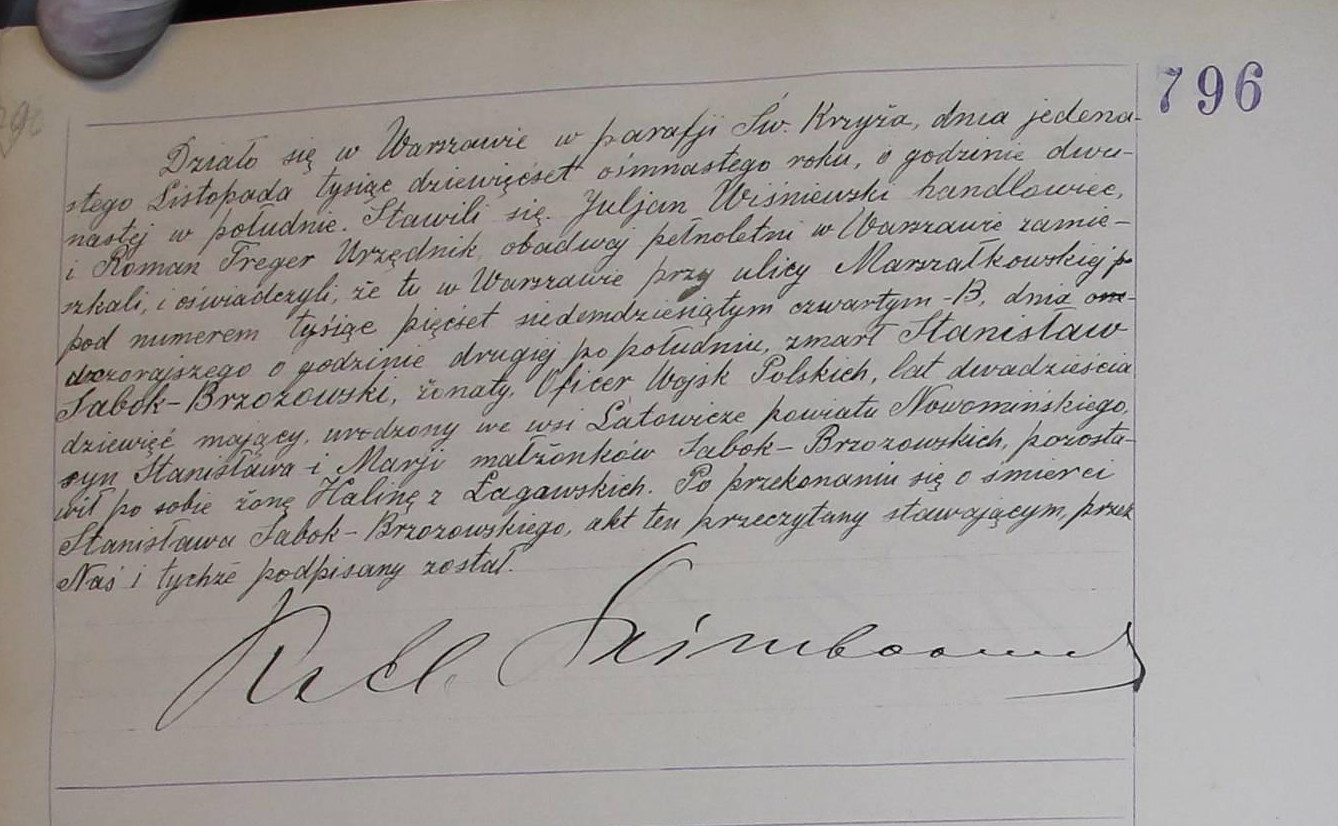 796
Działo się w Warszawie w parafji Św. Krzyża, dnia jedena-
stego Listopada tysiąc dziewięćset ośmnastego roku, o godzinie dwu-
nastej w południe. Stawili się. Juljan Wiśniewski handlowiec,
i Roman Treger Urzędnik, obadwaj pełnoletni w Warszawie zamie-
szkali, i oświadczyli, że tu w Warszawie przy ulicy Marszałkowskiej p
pod numerem tysiąc pięćset siedemdziesiątym czwartym -B, dnia
wczorajszego o godzinie drugiej po południu, zmarł Stanisław
Sabok-Brzozowski, żonaty, Oficer Wojsk Polskich, lat dwadzieścia
dziewięć mający, urodzony we wsi Latowicze powiatu Nowomińskiego,
syn Stanisława i Marji małżonków Sabok-Brzozowskich, pozosta-
wił po sobie żonę Halinę z Łagawskich. Po przekonaniu się o śmierci
Stanisława Sabok-Brzozowskiego, akt ten przeczytany stawającym, przez
Nas i tychże podpisany został.